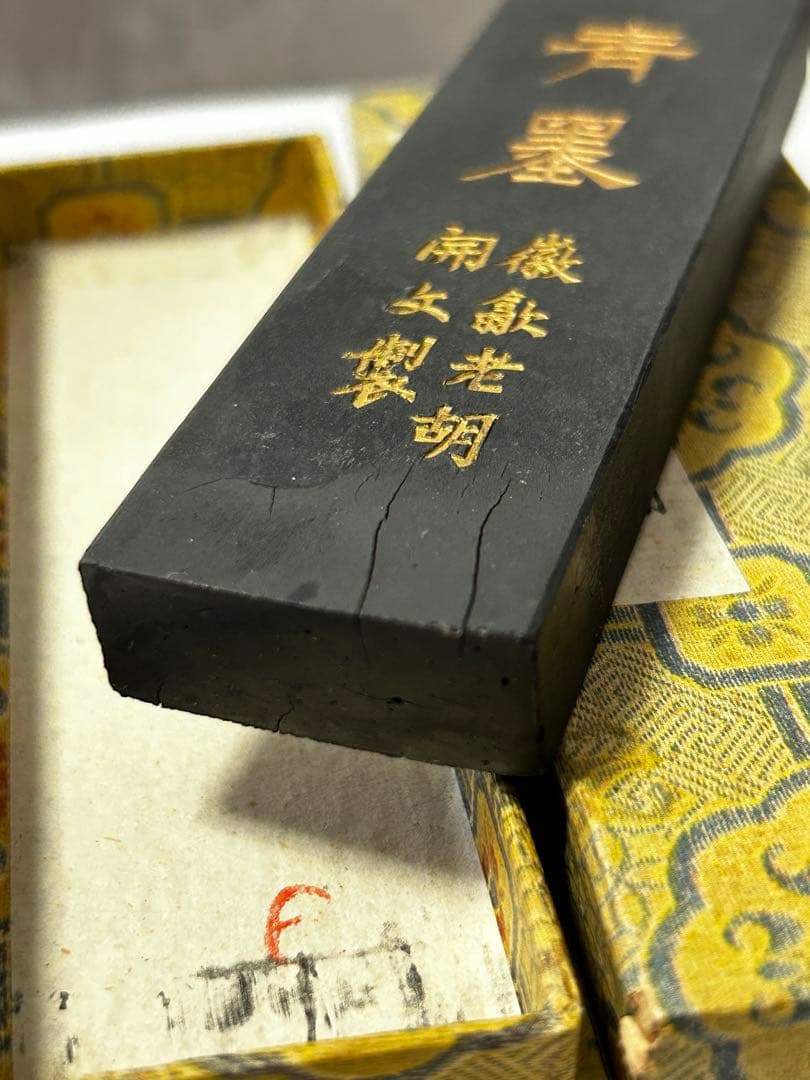 青墨
徽歙老胡
開文製
E